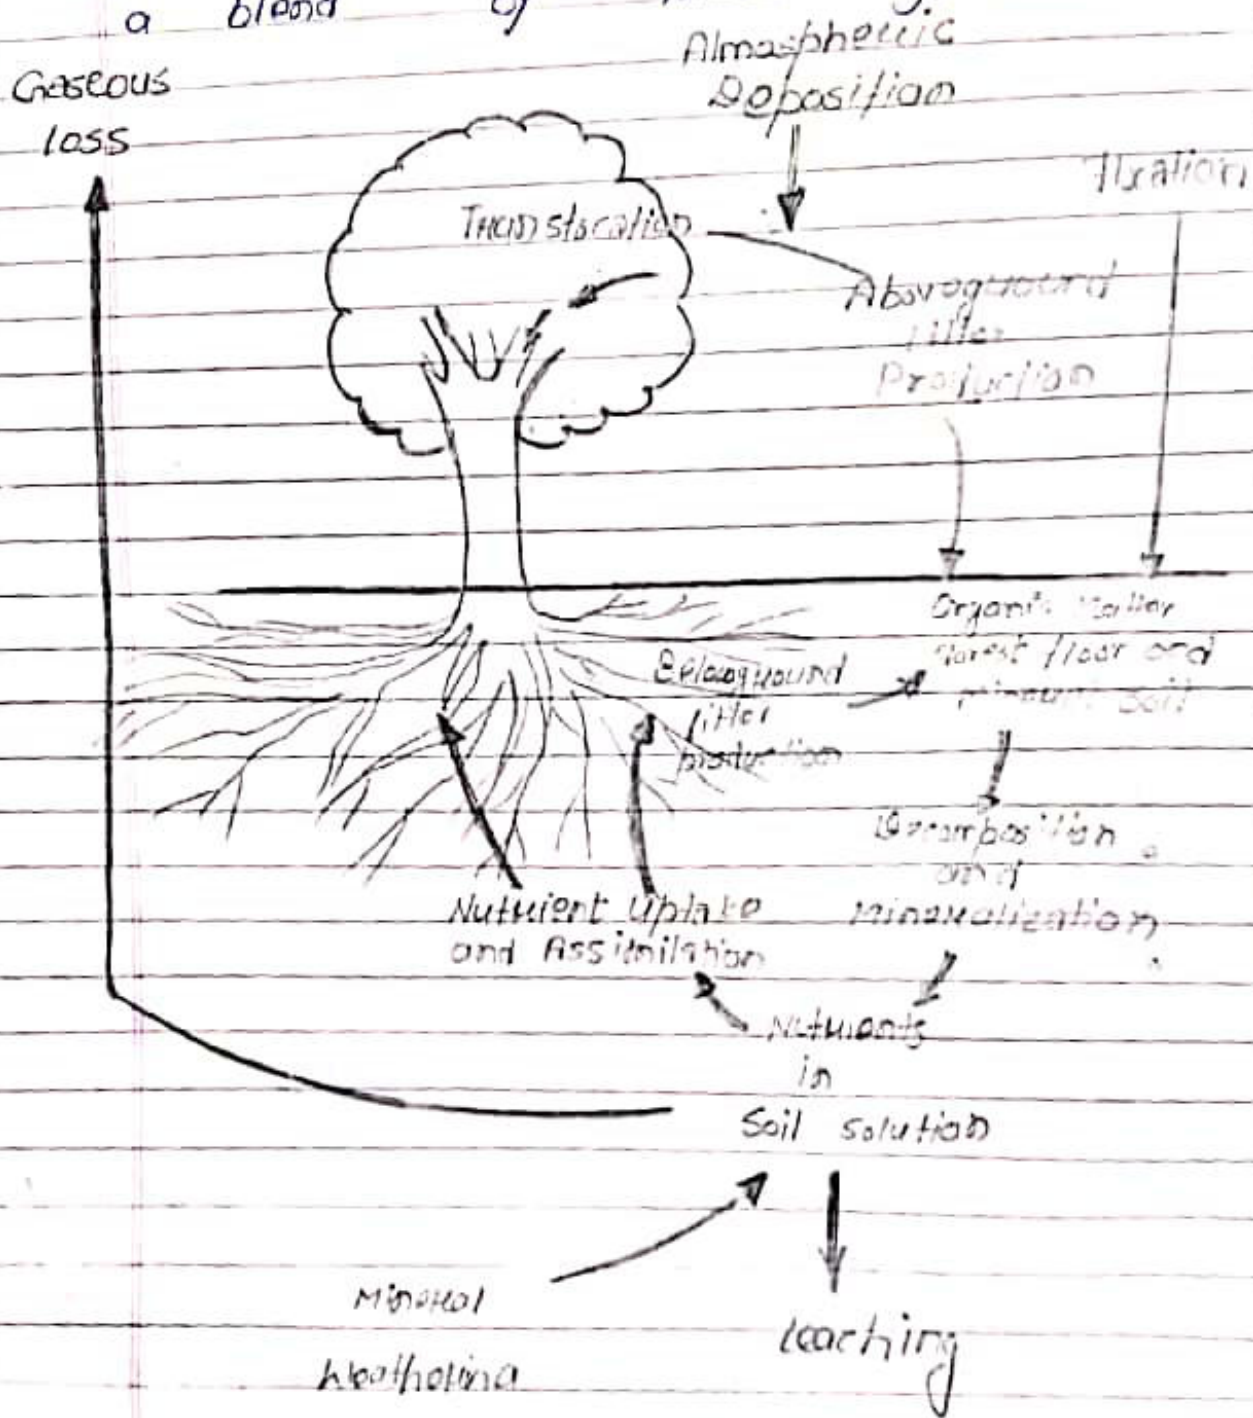 a blend of
Gaseous
loss
Atmospheric
Deposition
Fixation
Translocation
Aboveground
litter
Production
Organic Matter
forest floor and
mineral Soil
Belowground
litter
production
Decomposition
and
Mineralization
Nutrient Uptake
and Assimilation
Nutrients
in
Soil solution
Mineral
Weathering
Leaching